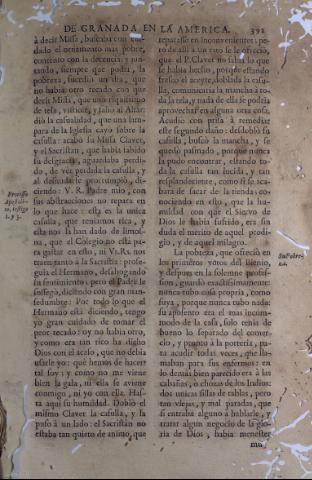 DE GRANADA, EN LA AMERICA. 391
à decir Missa, buscaba con cuidado
el ornamento mas pobre,
contento con la decencia; y juntando,
siempre que podia, la
pobreza, sucediò un dia, que
no havia otro recado con que
decir Missa, que uno
de tela, vistiòse, y saliò al Altar:
diò la casualidad, que una lampara
de la Iglesia cayò sobre la
casulla: acabò su Missa Claver,
y el Sacristan, que havia
su desgracia, aguardaba
do, de vèr perdida la casulla, y
al desnudarse prorrumpiò, diciendo:
V. R. Padre mio, con
sus abstracciones no repara en
lo que hace: esta es la unica
casulla, que tenemos rica, y
esta nos la han dado de limosna,
que el Colegio no està para
gastar en esto, ni V. R. no
tremanto à la Sacristia: proseguia
el Hermano, desahogando
su sentimiento, pero el Padre le
sossegò, diciendo con gran mansedumbre:
Por todo lo que el
Hermano està diciendo, tengo
yo gran cuidado de tomar el
peor recado: oy no havia otro,
y como era tan rico ha dicho
Dios con el acaso, que no debia
usarle yo: què hemos de hacer?
tal soy: y como no me viene
bien la gala, ni ella se aviene
conmigo, ni yo con ella. Hasta
aqui su humildad. Doblò el
mismo Claver la casulla, y la
puso à un lado: el Sacristan no
estaba tan quieto de animo, que
Su Pobreza.
reparasse en inconvenientes; pero
de alli à un rato se le ofreciò,
que el P. Claver no sabìa lo que
se havia hecho, porque estando
fresco el aceyte, doblada la casulla,
comunicaria la mancha à toda
la tela, y nada de ella se podria
aprovechar en alguna otra cosa.
Acudiò con prisa à remediar
este segundo daño: desdoblò su
casulla, buscò la mancha, y se
quedò pasmado, porque nunca
la pudo encontrar, estando toda
la casulla tan lucida, y tan
resplandeciente, como si se acabàra
de sacar de la tienda; conociendo
en esto, que la humildad
con que el Siervo de
Dios le havia sufrido, era sin
duda el merito de aquel prodigio,
y de aquel milagro.
La pobreza, que ofreciò en
los primeros votos del Bienio,
y despues en la solemne profession,
guardò exactissimamente:
nunca tuvo cosa propria, como
suya, porque nunca tubo nada:
su aposento era el mas incomodo
de la casa, solo tenia de
bueno lo separado del comercio,
y pronto à la porterìa, para
acudir todas las veces, que llamaban
para sus enfermos: en
lo demàs bien parecido era à las
cabañas, ò chozas de los Indios:
dos unicas sillas de tablas, pero
tan viejas, y mal paradas, que
si entraba alguno à hablarle, y
tratar algun negocio de la gloria
de Dios, havia menester
mu-